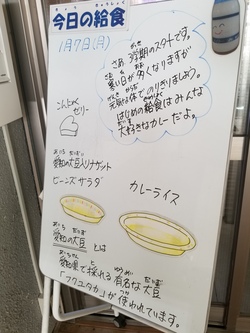 今日の給食
1月7日(月)
さあ 3学期のスタートです。
寒い日が多くなりますが
元気な体でのりきりましょう。
はじめの給食はみんな
大好きなカレーだよ。
こんにゃく
ゼリー
愛知の大豆入りナゲット
ビーンズサラダ
カレーライス
愛知の大豆 とは
愛知県で採れる有名な大豆
「フクユタカ」が使われています。